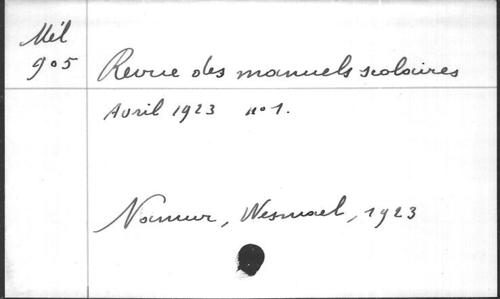 Mél
905
Revue des manuels scolaires
Avril 1923 n°1.
Namur, Wesmael, 1923